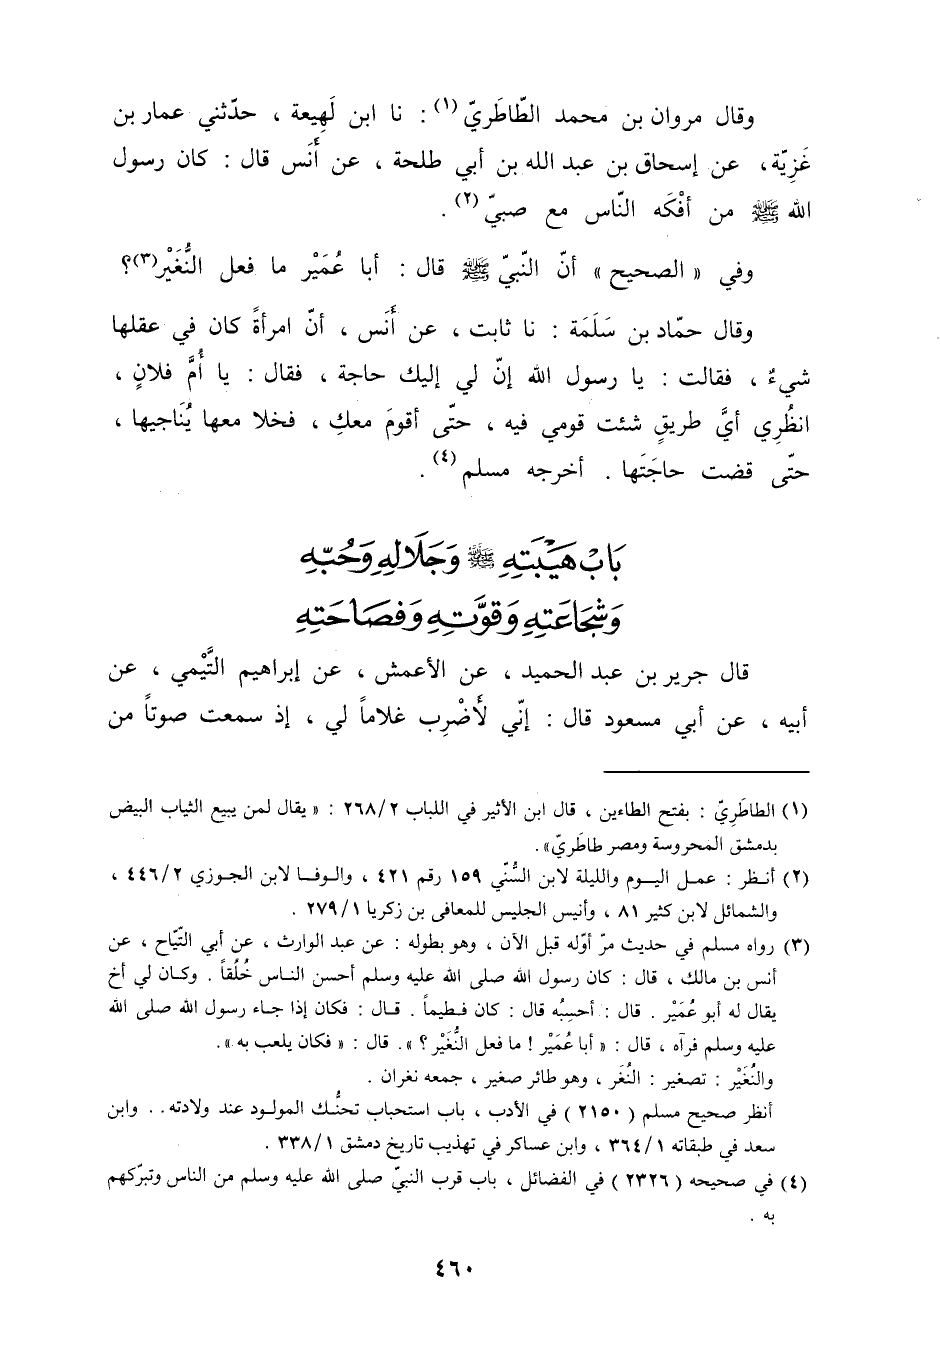 وقال مروان بن محمد الطّاطَريّ(١) : نا ابن لَهِيعة ، حدّثني عمار بن
غَزِيّة، عن إسحاق بن عبد الله بن أبي طلحة ، عن أَنَس قال : كان رسول
الله ﷺ من أفْكَه النّاس مع صبيّ(٢) .
وفي « الصحيح » أنّ النّبيّ ﷺ قال : أبا عُمَيْر ما فعل النُّغَيْر(٣)؟
وقال حمّاد بن سَلَمَة : نا ثابت ، عن أَنَس ، أنّ امرأةً كان في عقلها
شيءٌ ، فقالت : يا رسول الله إنّ لي إليك حاجة ، فقال : يا أُمَّ فلانٍ ،
انظُرِي أيَّ طريقٍ شئت قومي فيه ، حتّى أقومَ معكِ ، فخلا معها يُنَاجيها ،
حتّى قضت حاجَتَها . أخرجه مسلم(٤) .
بَابُ هَيْبَتِهِ ﷺ وَجَلَالِهِ وَحُبّهِ
وَشَجَاعَتِهِ وَقُوَّتِهِ وَفَصَاحَتِهِ
قال جرير بن عبد الحميد ، عن الأعمش ، عن إبراهيم التَّيْمي ، عن
أبيه ، عن أبي مسعود قال : إنّي لَأَضْرِب غلاماً لي ، إذ سمعت صوتاً من
(١) الطاطَرِيّ : بفتح الطاءين ، قال ابن الأثير في اللباب ٢٦٨/٢ : « يقال لمن يبيع الثياب البيض
بدمشق المحروسة ومصر طاطَريّ» .
(٢) أنظر : عمل اليوم والليلة لابن السُّنّي ١٥٩ رقم ٤٢١ ، والوفا لابن الجوزي ٤٤٦/٢ ،
والشمائل لابن كثير ٨١ ، وأنيس الجليس للمعافى بن زكريا ٢٧٩/١ .
(٣) رواه مسلم في حديث مرّ أوّله قبل الآن ، وهو بطوله : عن عبد الوارث ، عن أبي التّيّاح ، عن
أنس بن مالك ، قال : كان رسول الله صلى الله عليه وسلم أحسن الناس خُلُقاً . وكان لي أخ
يقال له أبو عُمَيْر . قال : أحسِبُه قال : كان فطيماً . قال : فكان إذا جاء رسول الله صلى الله
عليه وسلم فرآه ، قال : « أبا عُمَيْر ! ما فعل النُّغَيْر ؟ ». قال : « فكان يلعب به ».
والنُغَيْر : تصغير : النُغَر ، وهو طائر صغير ، جمعه نغران .
أنظر صحيح مسلم ( ٢١٥٠ ) في الأدب ، باب استحباب تحنُّك المولود عند ولادته . . وابن
سعد في طبقاته ٣٦٤/١ ، وابن عساكر في تهذيب تاريخ دمشق ٣٣٨/١ .
(٤) في صحيحه ( ٢٣٢٦ ) في الفضائل ، باب قرب النبيّ صلى الله عليه وسلم من الناس وتبرّكهم
به .
٤٦٠